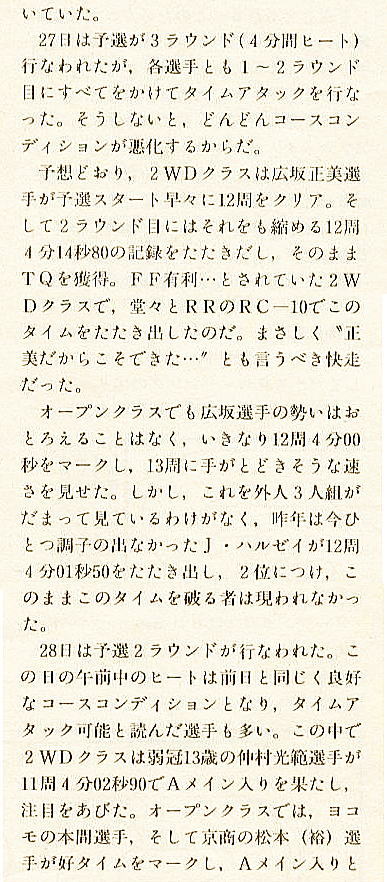 いていた。
27日は予選が3ラウンド(4分間ヒート)
行なわれたが，各選手とも1～2ラウンド
目にすべてをかけてタイムアタックを行な
った。そうしないと，どんどんコースコン
ディションが悪化するからだ。
予想どおり，2WDクラスは広坂正美選
手が予選スタート早々に12周をクリア。そ
して2ラウンド目にはそれをも縮める12周
4分14秒80の記録をたたきだし，そのまま
TQを獲得。FF有利…とされていた2W
Dクラスで，堂々とRRのRC－10でこの
タイムをたたき出したのだ。まさしく〝正
美だからこそできた…〟とも言うべき快走
だった。
オープンクラスでも広坂選手の勢いはお
とろえることはなく，いきなり12周4分00
秒をマークし，13周に手がとどきそうな速
さを見せた。しかし，これを外人3人組が
だまって見ているわけがなく，昨年は今ひ
とつ調子の出なかったJ・ハルゼイが12周
4分01秒50をたたき出し，2位につけ，こ
のままこのタイムを破る者は現われなかっ
た。
28日は予選2ラウンドが行なわれた。こ
の日の午前中のヒートは前日と同じく良好
なコースコンディションとなり，タイムア
タック可能と読んだ選手も多い。この中で
2WDクラスは弱冠13歳の仲村光範選手が
11周4分02秒90でAメイン入りを果たし，
注目をあびた。オープンクラスでは，ヨコ
モの本間選手，そして京商の松本（裕）選
手が好タイムをマークし，Aメイン入りと